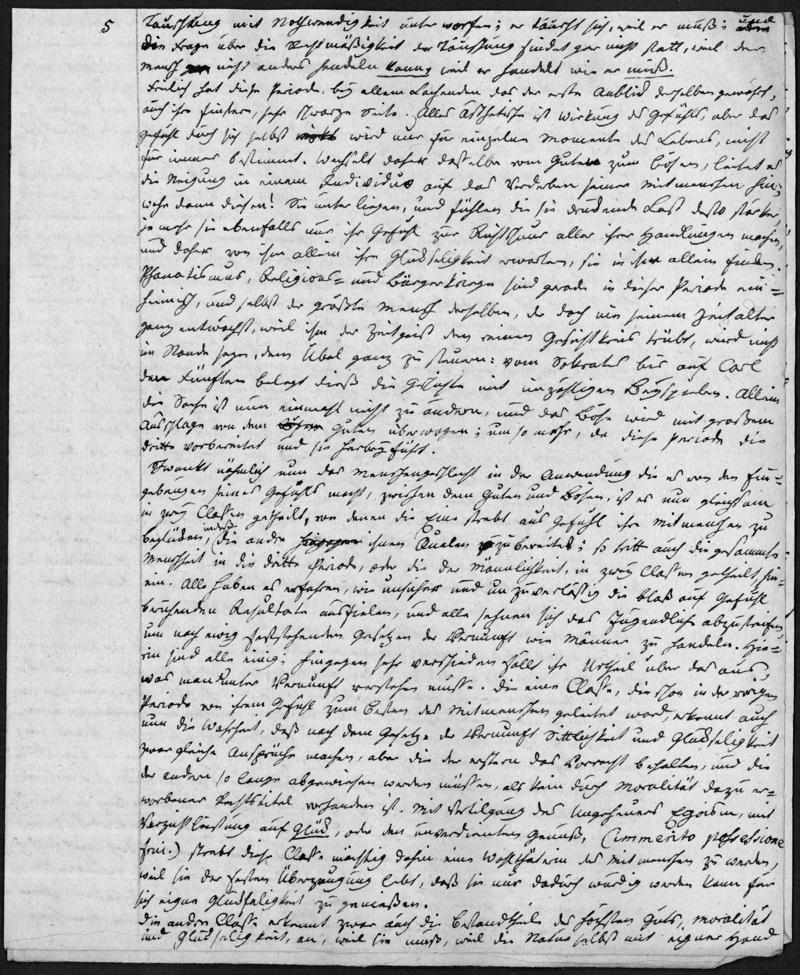 5
Täuschung mit Nothwendigkeit unterworfen; er täuscht sich, weil er muß; und
die Frage über die Rechtmäßigkeit der Täuschung findet gar nicht statt, weil der
Mensch nicht anders handeln kann, weil er handelt wie er muß.
Freilich hat diese Periode, bey allem Lachenden das der erste Anblick derselben gewährt,
auch ihre finstere, sehr schwarze Seite. Alles Ästhetische ist Wirkung des Gefühls, aber das
Gefühl durch sich selbst wird nur für einzelne Momente des Lebens, nicht
für immer bestimmt. Wechselt daher dasselbe vom Guten zum Bösen, leitet es
die Neigung in einem Individuo auf das Verderben seiner Mitmenschen hin,
wehe dann diesen! Sie unterliegen, und fühlen die sie drückende Last desto stärker,
je mehr sie ebenfalls nur ihr Gefühl zur Richtschnur aller ihrer Handlungen machen,
und daher von ihm allein ihre Glückseligkeit erwarten, sie in ihm allein finden.
Phanatismus, Religions- und Bürgerkriege sind gerade in dieser Periode ein-
heimisch, und selbst der größte Mensch derselben, der doch nie seinem Zeitalter
ganz entwächst, weil ihm der Zeitgeist den reinen Gesichtskreis trübt, wird nicht
im Stande seyn, dem Übel ganz zu steuern: vom Sokrates bis auf Carl
den Fünften belegt dieß die Geschichte mit unzähligen Beyspielen. Allein
die Sache ist nun einmahl nicht zu ändern, und das Böse wird mit großem
Ausschlage von dem Guten überwogen; um so mehr, da diese Periode die
dritte vorbereitet und sie herbeyführt.
Schwankt nähmlich nun das Menschengeschlecht in der Anwendung die es von den Ein-
gebungen seines Gefühls macht, zwischen dem Guten und Bösen, ist es nun gleichsam
in zwey Classen getheilt, von denen die Eine strebt aus Gefühl ihre Mitmenschen zu
beglücken, indeß die andre ihnen Qualen zubereitet; so tritt auch die gesammte
Menschheit in die dritte Periode, oder die der Männlichkeit, in zwey Classen getheilt, hin-
ein. Alle haben es erfahren, wie unsicher und unzuverlässig die bloß auf Gefühl
beruhenden Resultate ausfielen, und alle sehnen sich das Jugendliche abzustreifen
um nach ewig feststehenden Gesetzen der Vernunft wie Männer zu handeln. Hie-
rin sind alle einig; hingegen sehr verschieden fällt ihr Urtheil über das aus,
was man unter Vernunft verstehen müsse. Die eine Classe, die schon in der vorigen
Periode von ihrem Gefühl zum Besten des Mitmenschen geleitet ward, erkennt auch
nun die Wahrheit, daß nach dem Gesetze der Vernunft Sittlichkeit und Glückseligkeit
zwar gleiche Ansprüche machen, aber die der erstern das Vorrecht behalten, und die
der andern so lange abgewiesen werden müssen, als kein durch Moralität dazu er-
worbener Rechtstitel vorhanden ist. Mit Vertilgung des Ungeheuers Egoism, mit
Verzichtleistung auf Glück, oder den unverdienten Genuß, (immerito possessione
frui.) strebt diese Classe mächtig dahin eine Wohlthäterin des Mitmenschen zu werden,
weil sie der festen Überzeugung lebt, daß sie nur dadurch würdig werden kann für
sich eigne Glückseligkeit zu genießen.
Die andre Classe erkennt zwar auch die Bestandtheile des höchsten Guts, Moralität
und Glückseligkeit, an, weil sie muß, weil die Natur selbst mit eigner Hand